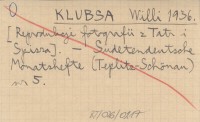 O KLUBSA Willi 1936.
[Reprodukcji fotografii z Tatr i
Spisza]. — Sudetendeutsche
Monatshefte (Teplitz-Schönau)
nr 5.